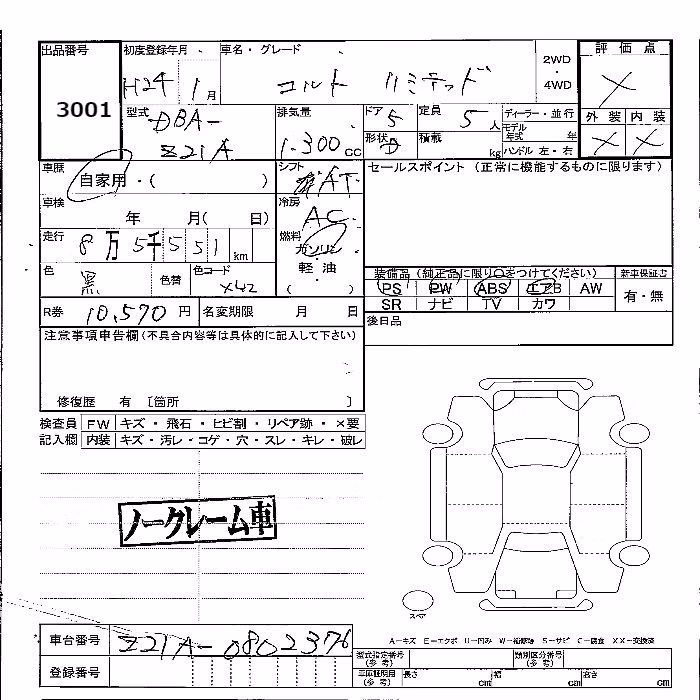 出品番号 初度登録年月 車名・グレード 2WD・4WD 評価点
3001 H24 1月 コルト リミテッド ×
型式 DBA-Z21A 排気量 1.300cc ドア 5 定員 5人 ディーラー・並行 外装 内装
形状 積載 kg モデル年式 年 ハンドル 左・右 × ×
車歴 自家用・( ) シフト AT セールスポイント(正常に機能するものに限ります)
車検 年 月( 日) 冷房 AC
走行 8万5千551km 燃料 ガソリン 軽・油 ( )
色 黒 色替 色コード X42
装備品(純正品に限り○をつけてください) 新車保証書
PS PW ABS エアB AW 有・無
SR ナビ TV カワ
R券 10,570円 名変期限 月 日 後日品
注意事項申告欄(不具合内容等は具体的に記入して下さい)
修復歴 有 〔箇所 〕
検査員 FW キズ・飛石・ヒビ割・リペア跡・×要
記入欄 内装 キズ・汚レ・コゲ・穴・スレ・キレ・破レ
ノークレーム車
スペア
車台番号 Z21A-0802376
A-キズ E-エクボ U-凹み W-補修跡 S-サビ C-腐食 XX-交換済
登録番号
型式指定番号(参考) 類別区分番号(参考)
車庫証明用(参考) 長さ cm 幅 cm 高さ cm